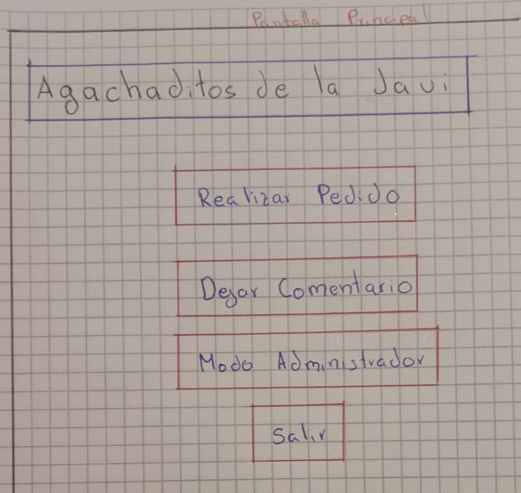 Pantalla Principal
Agachaditos de la Javi
Realizar Pedido
Dejar Comentario
Modo Administrador
Salir